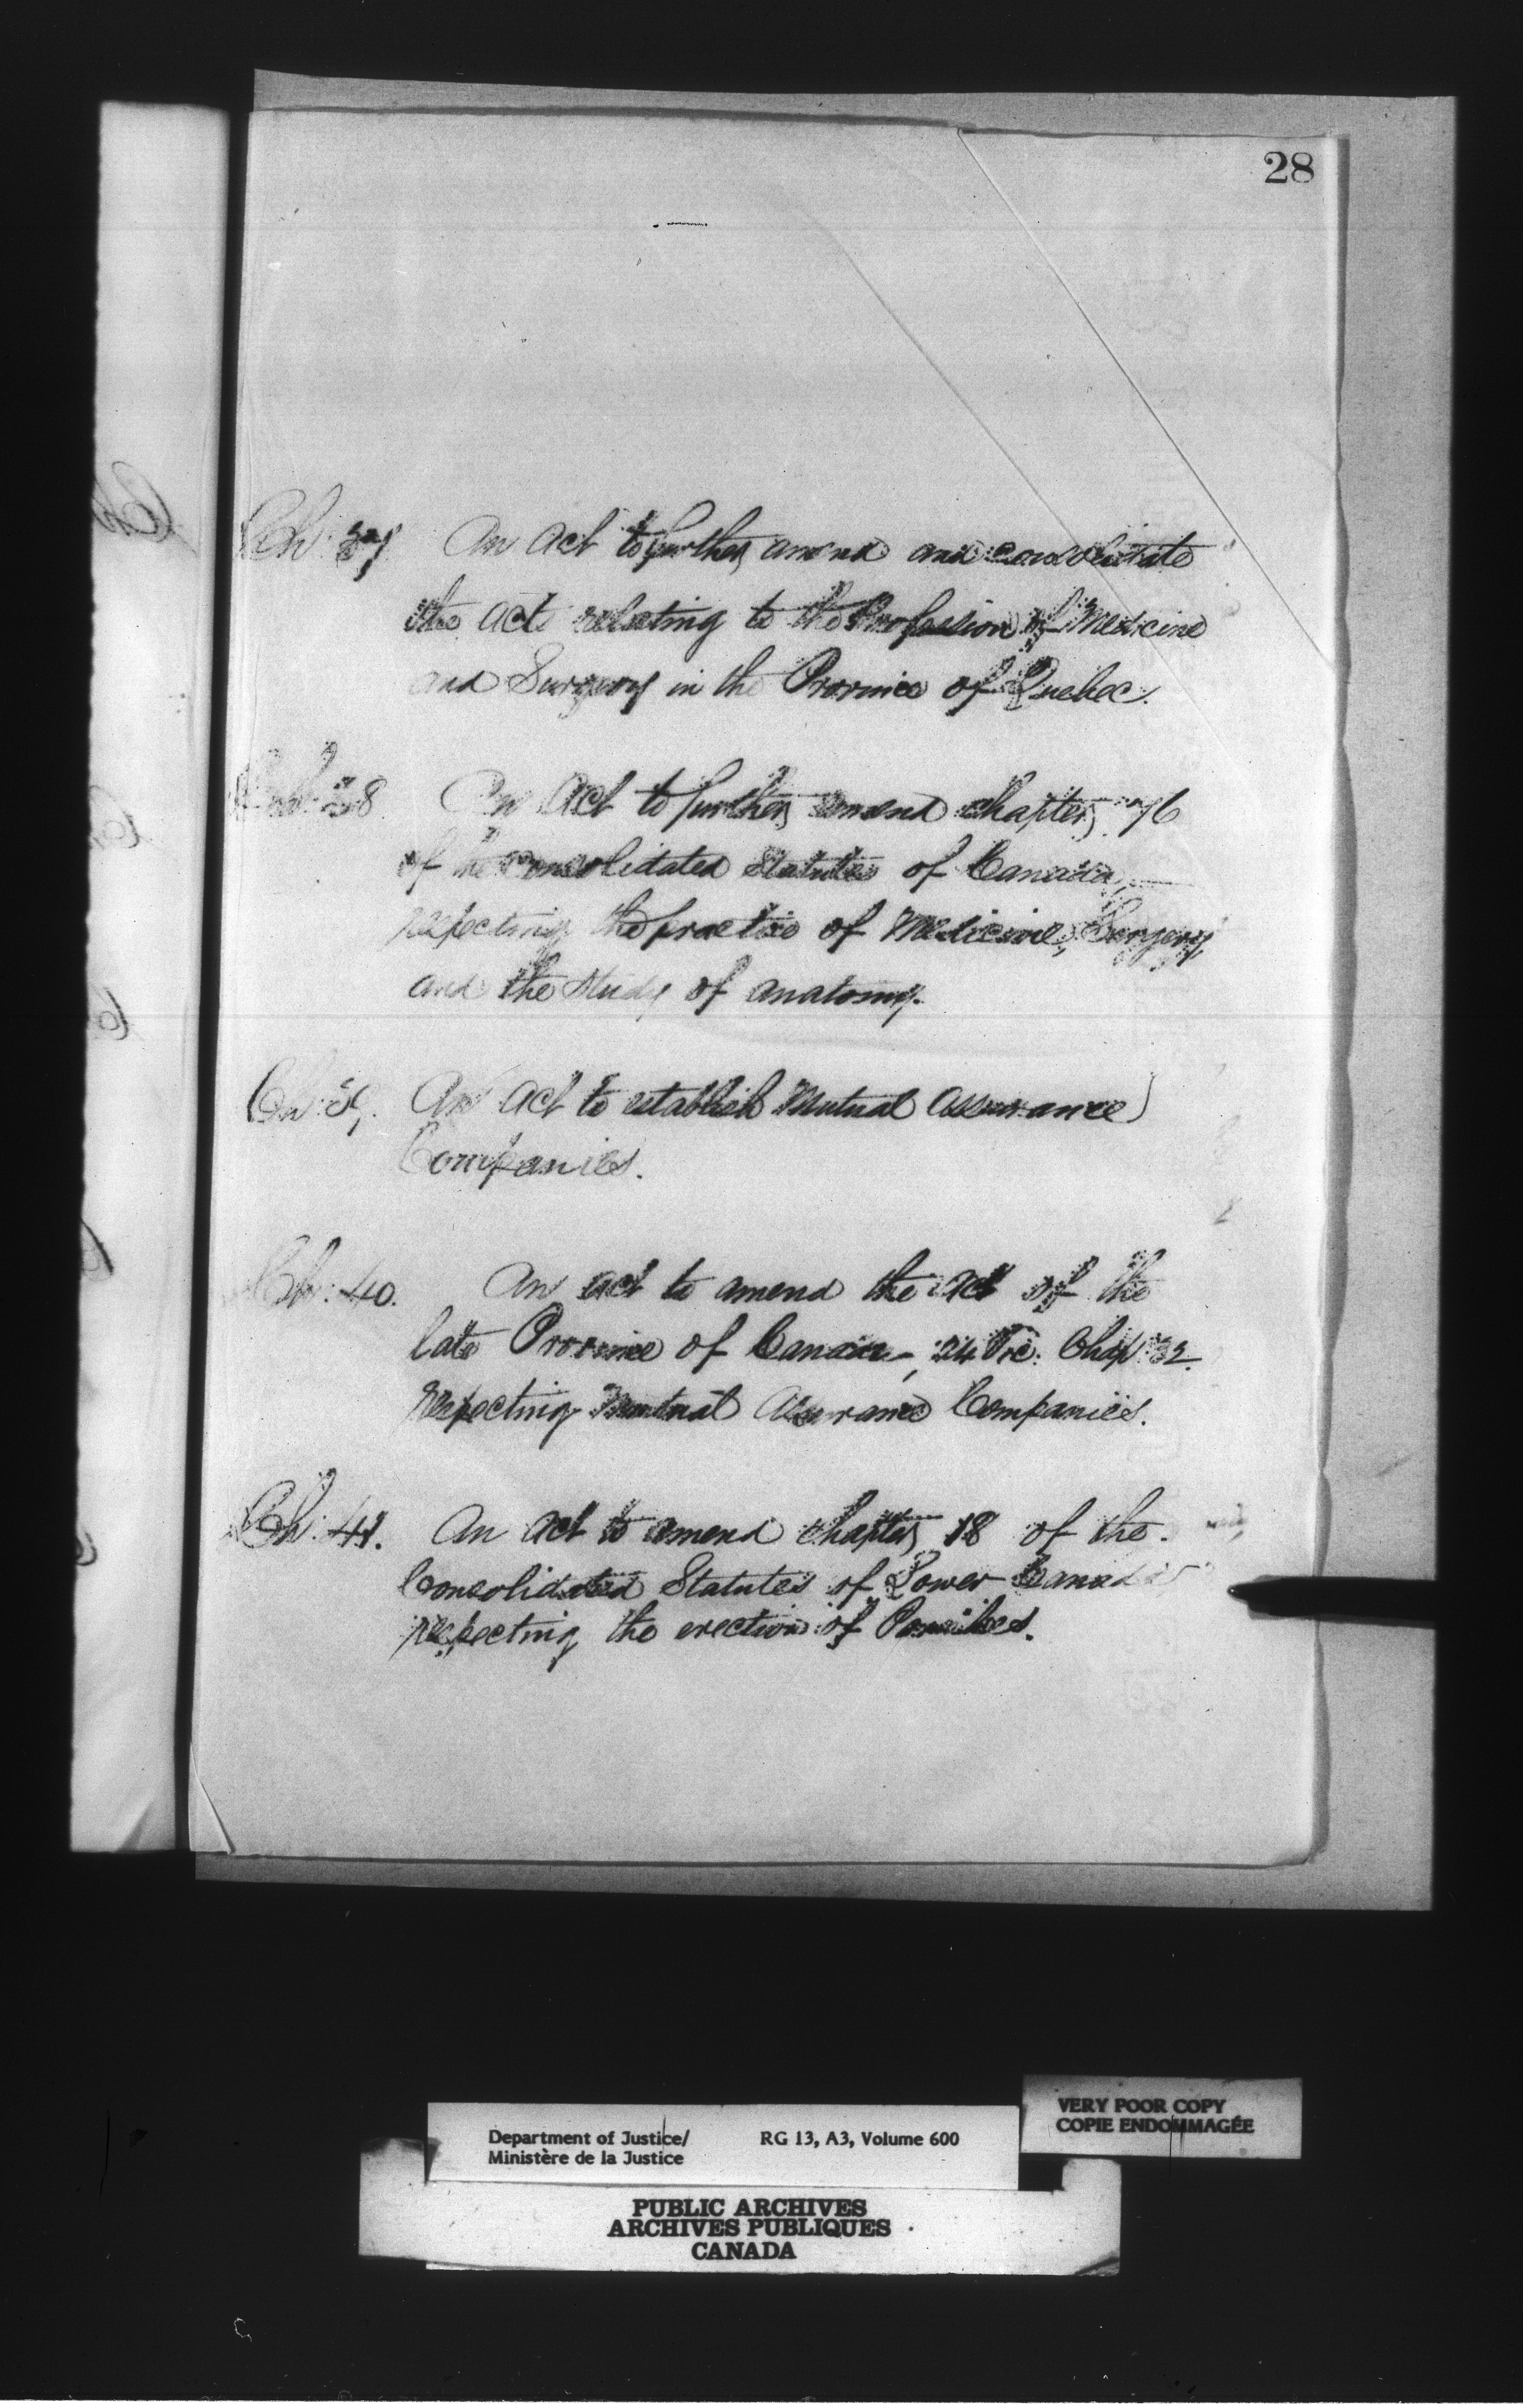 28
Ch: 37 An Act to further amend and consolidate
the acts relating to the Profession of Medicine
and Surgery in the Province of Quebec.
Ch: 38 An Act to further amend chapter 76
of the Consolidated Statutes of Canada,
respecting the practice of Medicine, Surgery,
and the study of anatomy.
Ch: 39. An Act to establish Mutual Assurance
Companies.
Ch: 40. An Act to amend the act of the
late Province of Canada, 24 Vic: Chap: 32
respecting Mutual Assurance Companies.
Ch: 41. An Act to amend chapter 18 of the
Consolidated Statutes of Lower Canada
respecting the erection of Parishes.
VERY POOR COPY
COPIE ENDOMMAGÉE
Department of Justice/ RG 13, A3, Volume 600
Ministère de la Justice
PUBLIC ARCHIVES
ARCHIVES PUBLIQUES
CANADA